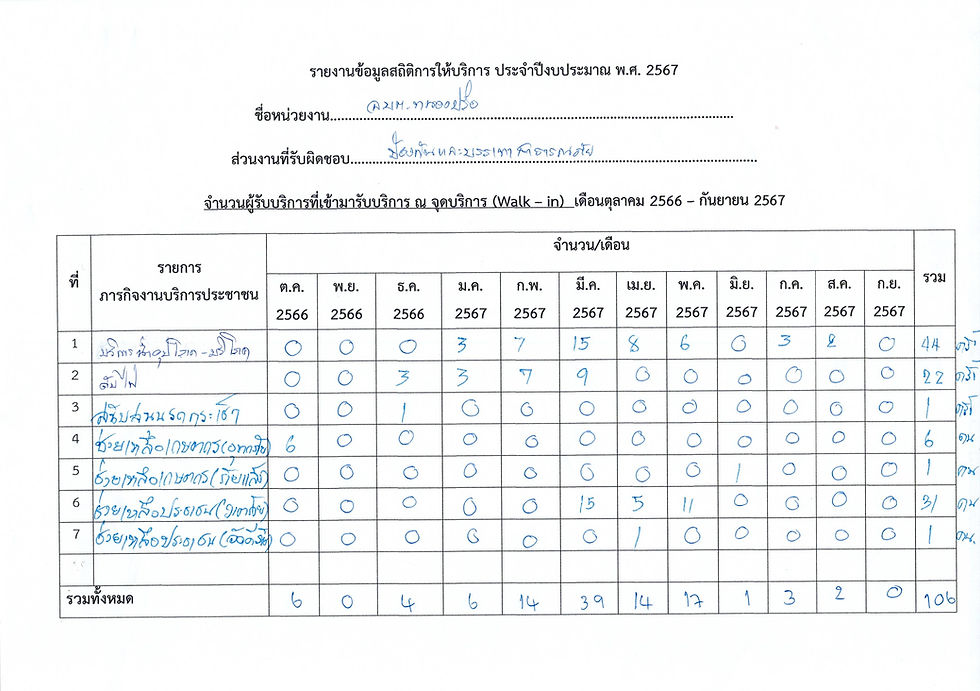 รายงานข้อมูลสถิติการให้บริการ ประจำปีงบประมาณ พ.ศ. 2567
ชื่อหน่วยงาน อบต.หนองปรือ
ส่วนงานที่รับผิดชอบ ป้องกันและบรรเทาสาธารณภัย
จำนวนผู้รับบริการที่เข้ามารับบริการ ณ จุดบริการ (Walk – in) เดือนตุลาคม 2566 – กันยายน 2567
ที่ รายการ ภารกิจงานบริการประชาชน จำนวน/เดือน รวม
ต.ค. 2566 พ.ย. 2566 ธ.ค. 2566 ม.ค. 2567 ก.พ. 2567 มี.ค. 2567 เม.ย. 2567 พ.ค. 2567 มิ.ย. 2567 ก.ค. 2567 ส.ค. 2567 ก.ย. 2567
1 บริการน้ำอุปโภค-บริโภค 0 0 0 3 7 15 8 6 0 3 2 0 44
2 ดับไฟ 0 0 3 3 7 9 0 0 0 0 0 0 22
3 0 0 1 0 0 0 0 0 0 0 0 0 1
4 ช่วยเหลือเกษตรกร(อุทกภัย) 6 0 0 0 0 0 0 0 0 0 0 0 6 คน
5 ช่วยเหลือเกษตรกร(ภัยแล้ง) 0 0 0 0 0 0 0 0 1 0 0 0 1 คน
6 ช่วยเหลือประชาชน(วาตภัย) 0 0 0 0 0 15 5 11 0 0 0 0 31 คน
7 ช่วยเหลือประชาชน(อัคคีภัย) 0 0 0 0 0 0 1 0 0 0 0 0 1 คน.
รวมทั้งหมด 6 0 4 6 14 39 14 17 1 3 2 0 106